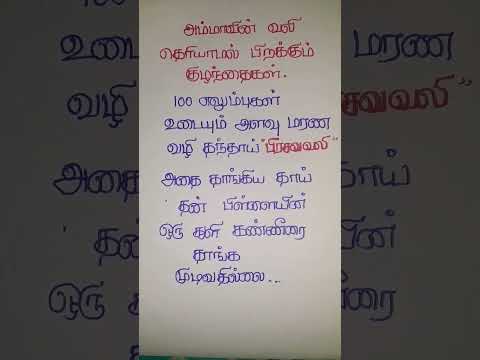 அம்மாவின் வலி
தெரியாமல் பிறக்கும்
குழந்தைகள்.
100 எலும்புகள்
உடையும் அளவு மரண
வழி தந்தாய் "பிரசவவலி"
அதை தாங்கிய தாய்
தன் பிள்ளையின்
ஒரு துளி கண்ணீரை
தாங்க
முடிவதில்லை...